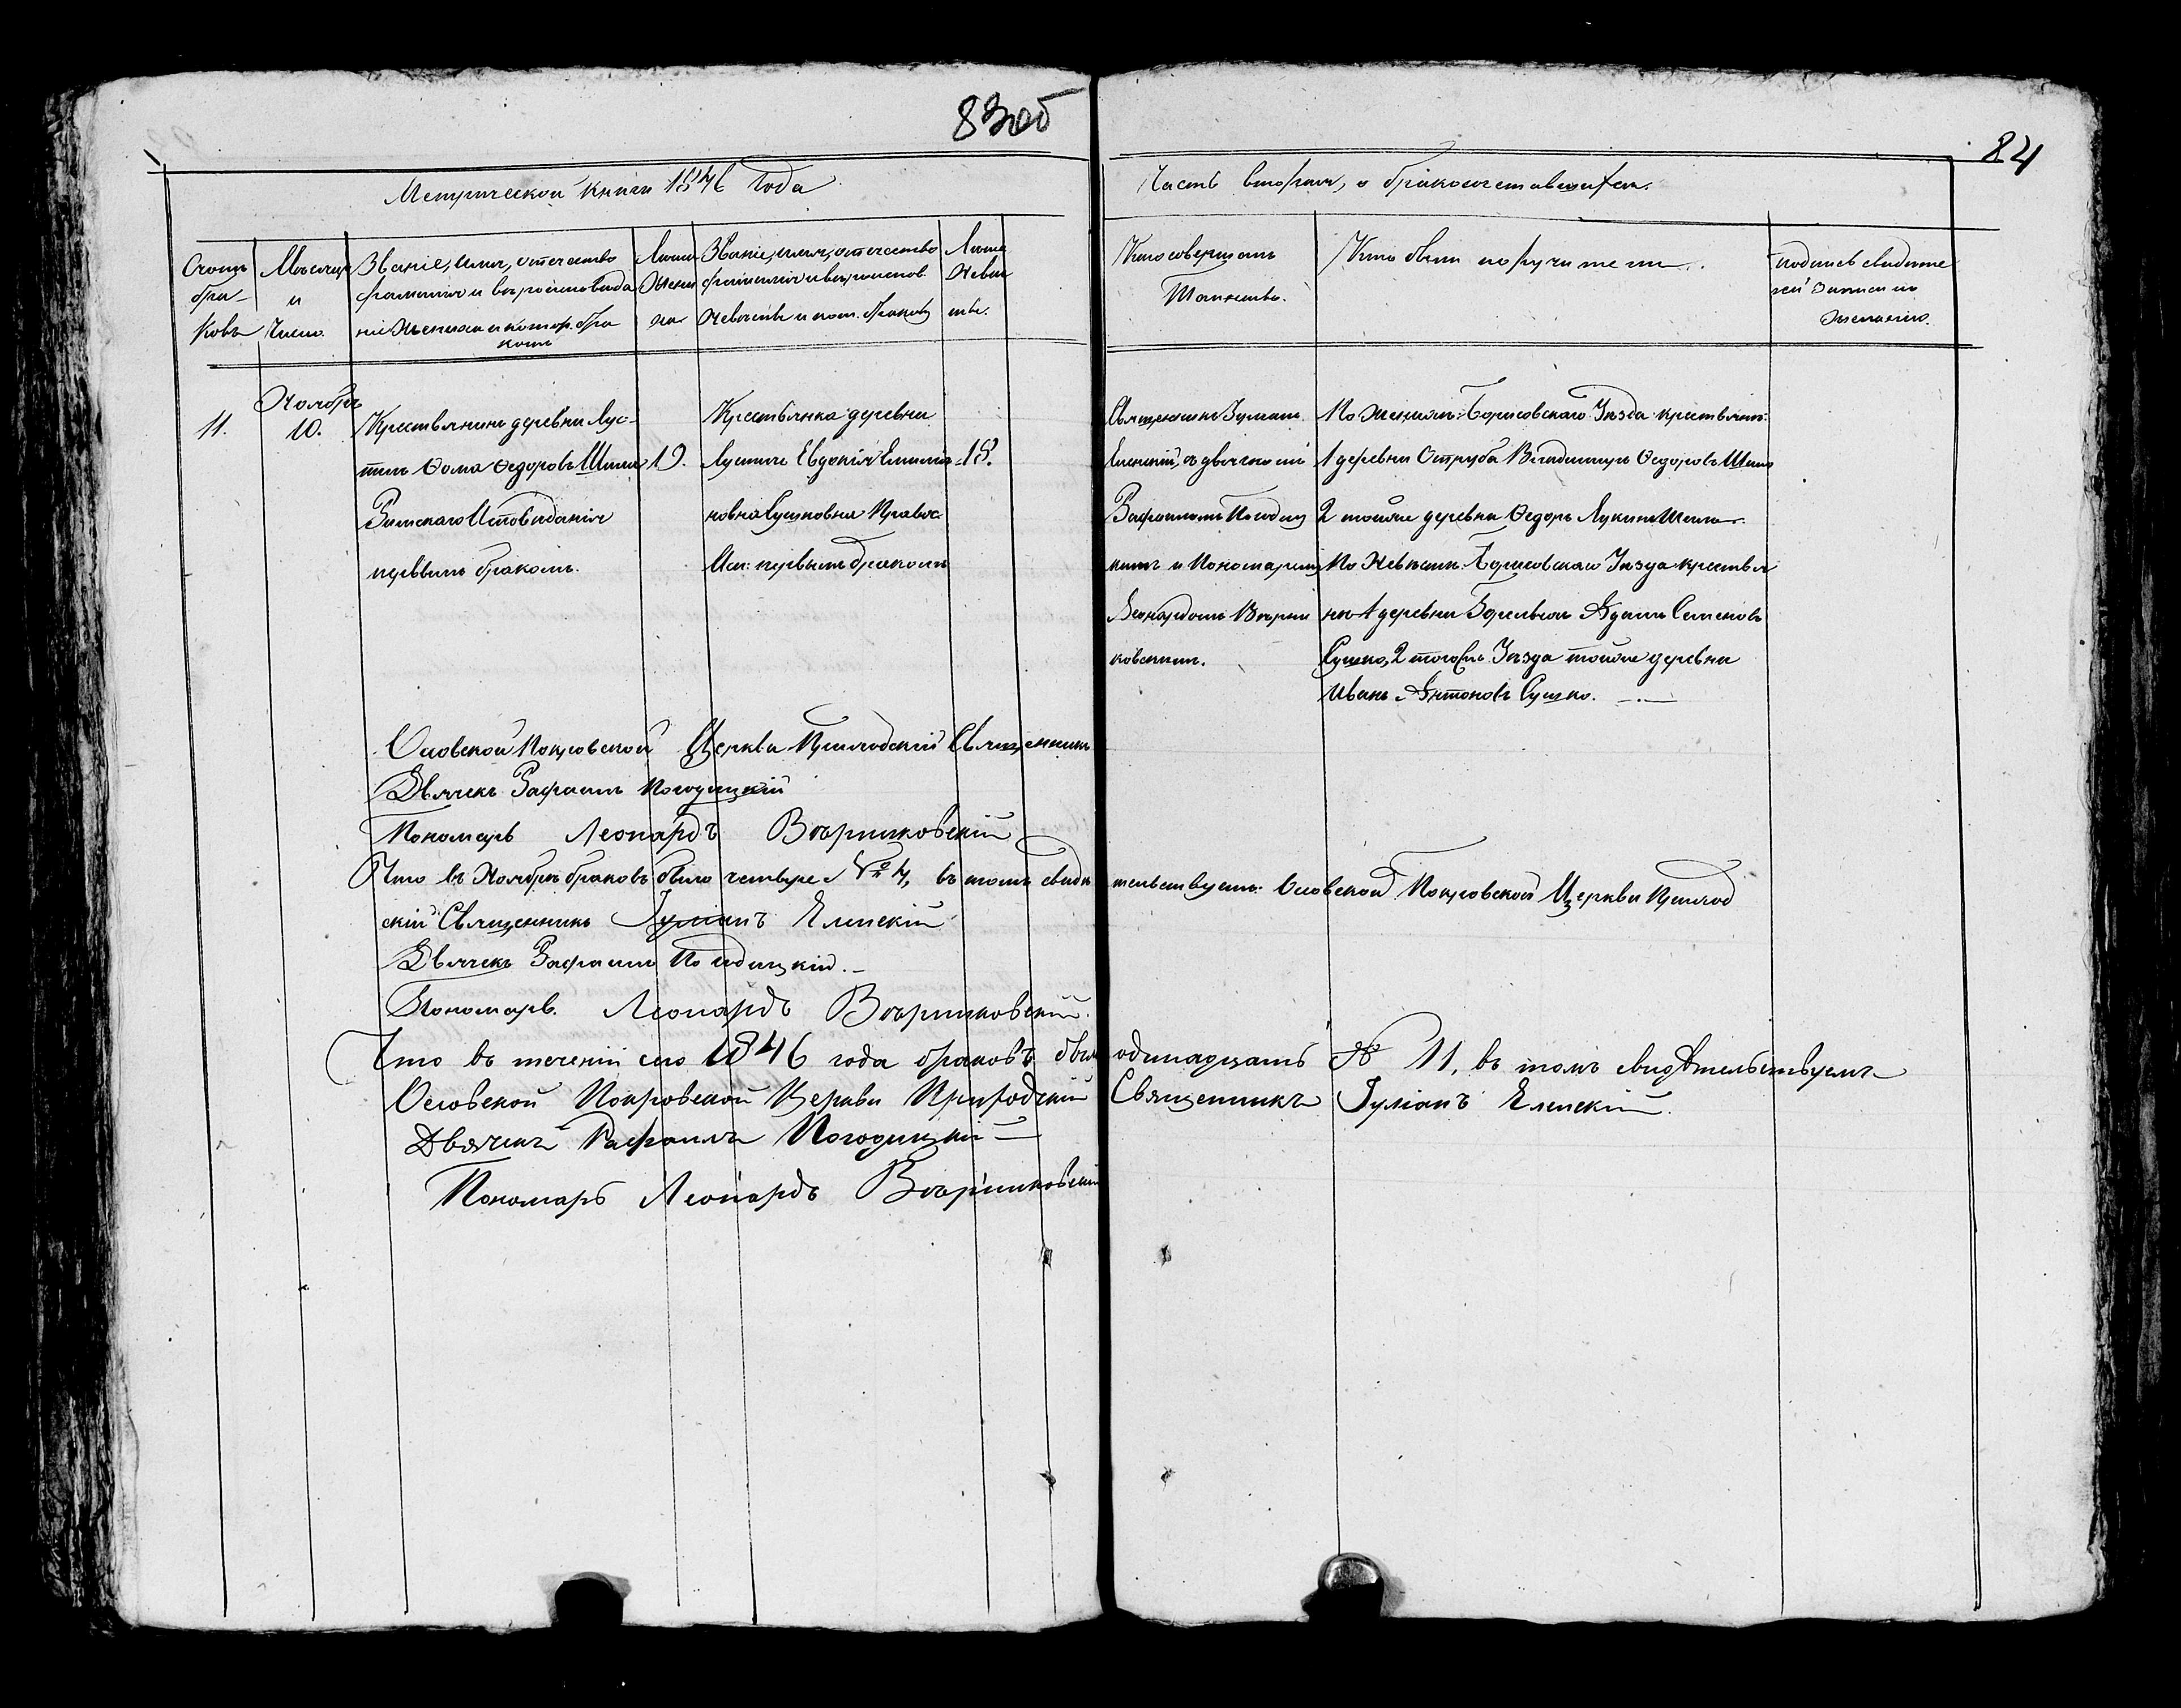 83об
84
Метрической книги 1846 Года
Часть вторая, о бракосочетавшихся.
Счотъ бра-ковъ
Мѣсяцъ и Число.
Званіе, имя, отечество
фамилія и вѣроисповѣда
ніе Жениха и котор. бра
комъ
Лѣта Жени ха
Званіе, имя, отечество
фамилія и вѣроисповѣ.
Невѣсты и кот. бракомъ
Лѣта Невѣ сты.
Кто совершалъ
Таинство.
Кто были поручители.
подпись свидѣте
лей записи по
желанію.
Ноябрь
11. 10.
Крестьянинъ деревни Лус-
тичъ Ѳома Ѳедоровъ Шиша 19.
Римскаго Исповѣданія
первымъ бракомъ.
Крестьянка деревни
Лустичъ Евдокія 18.
новна Сушковна Правос.
Исп: первымъ бракомъ
Священникъ Іуліанъ
Еленскій, съ дьячкомъ
Рафаиломъ Погодиц
кимъ и Пономаремъ
Леонардомъ Вѣрни
ковскимъ.
По Женихѣ: Борисовскаго Уѣзда крестьянъ:
1 деревни Отруба Владимиръ Ѳедоровъ
2 тойже деревни Ѳедоръ Лукинъ
По Невѣстѣ: Борисовскаго Уѣзда крестья
нъ 1 деревни Адамъ Семеновъ
Сушко, 2 тогожъ Уѣзда тойже деревни
Иванъ Антоновъ Сушко.
Осовской Покровской Церкви Приходскій Священникъ
Дьячекъ Рафаилъ Погодицкій
Пономарь Леонардъ Вѣрниковскій
Что въ Ноябрѣ браковъ было четыре № 4, въ томъ свидѣ тельствуемъ: Осовской Покровской Церкви Приход
скій Священникъ Іуліанъ Еленскій
Дьячекъ Рафаилъ Погодицкій.
Пономарь. Леонардъ Вѣрниковскій.
Что въ теченіи сего 1846 года браковъ было одинадцать № 11, въ томъ свидѣтельствуемъ
Осовской Покровской Церкви Приходскій Священникъ Іуліанъ Еленскій.
Дьячекъ Рафаилъ Погодицкій
Пономарь Леонардъ Вѣрниковскій